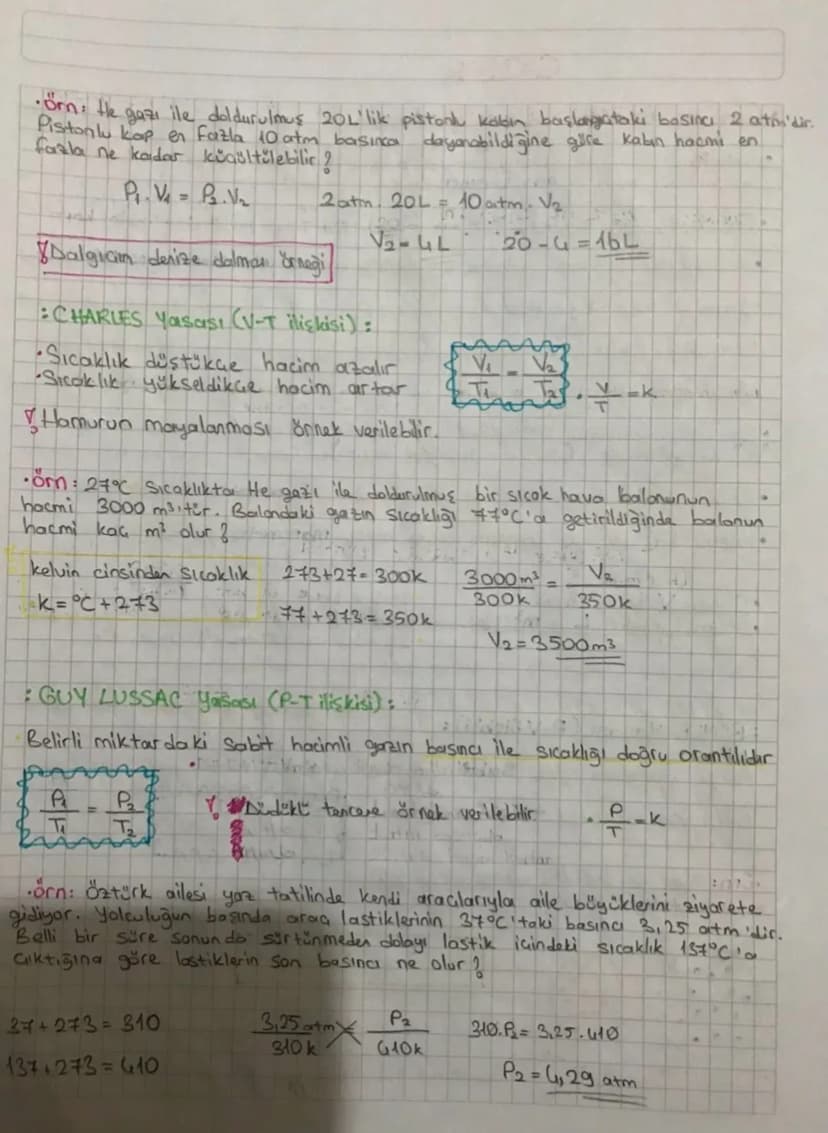 • Örn: He gazı ile doldurulmuş 20L'lik pistonlu kabın başlangıçtaki basıncı 2 atm'dir.
Pistonlu kap en fazla 10 atm basınca dayanabildiğine göre kabın hacmi en
fazla ne kadar küçültülebilir?
P₁.V₁ = P₂.V₂ 2 atm. 20L = 10 atm. V₂
V₂=4L 20-4=16L
Dalgıcın denize dalması örneği
: CHARLES Yasası (V-T ilişkisi) :
• Sıcaklık düştükçe hacim azalır
• Sıcaklık yükseldikçe hacim artar
V₁/T₁ = V₂/T₂ • V/T=k
Hamurun mayalanması örnek verilebilir.
• Örn: 27°C sıcaklıkta He gazı ile doldurulmuş bir sıcak hava balonunun
hacmi 3000 m³'tür. Balondaki gazın sıcaklığı 77°C'a getirildiğinde balonun
hacmi kaç m³ olur?
kelvin cinsinden sıcaklık 273+27=300k 3000m³/300k = V₂/350k
k=°C+273 77+273=350k
V₂=3500m³
: GUY LUSSAC Yasası (P-T ilişkisi) :
Belirli miktardaki sabit hacimli gazın basıncı ile sıcaklığı doğru orantılıdır
P₁/T₁ = P₂/T₂ Düdüklü tencere örnek verilebilir. • P/T=k
• Örn: Öztürk ailesi yaz tatilinde kendi araçlarıyla aile büyüklerini ziyarete
gidiyor. Yolculuğun başında araç lastiklerinin 37°C'taki basıncı 3,25 atm'dir.
Belli bir süre sonunda sürtünmeden dolayı lastik içindeki sıcaklık 137°C'a
çıktığına göre lastiklerin son basıncı ne olur?
37+273=310 3,25 atm/310k P₂/410k 310.P₂=3,25.410
137+273=410
P₂=4,29 atm